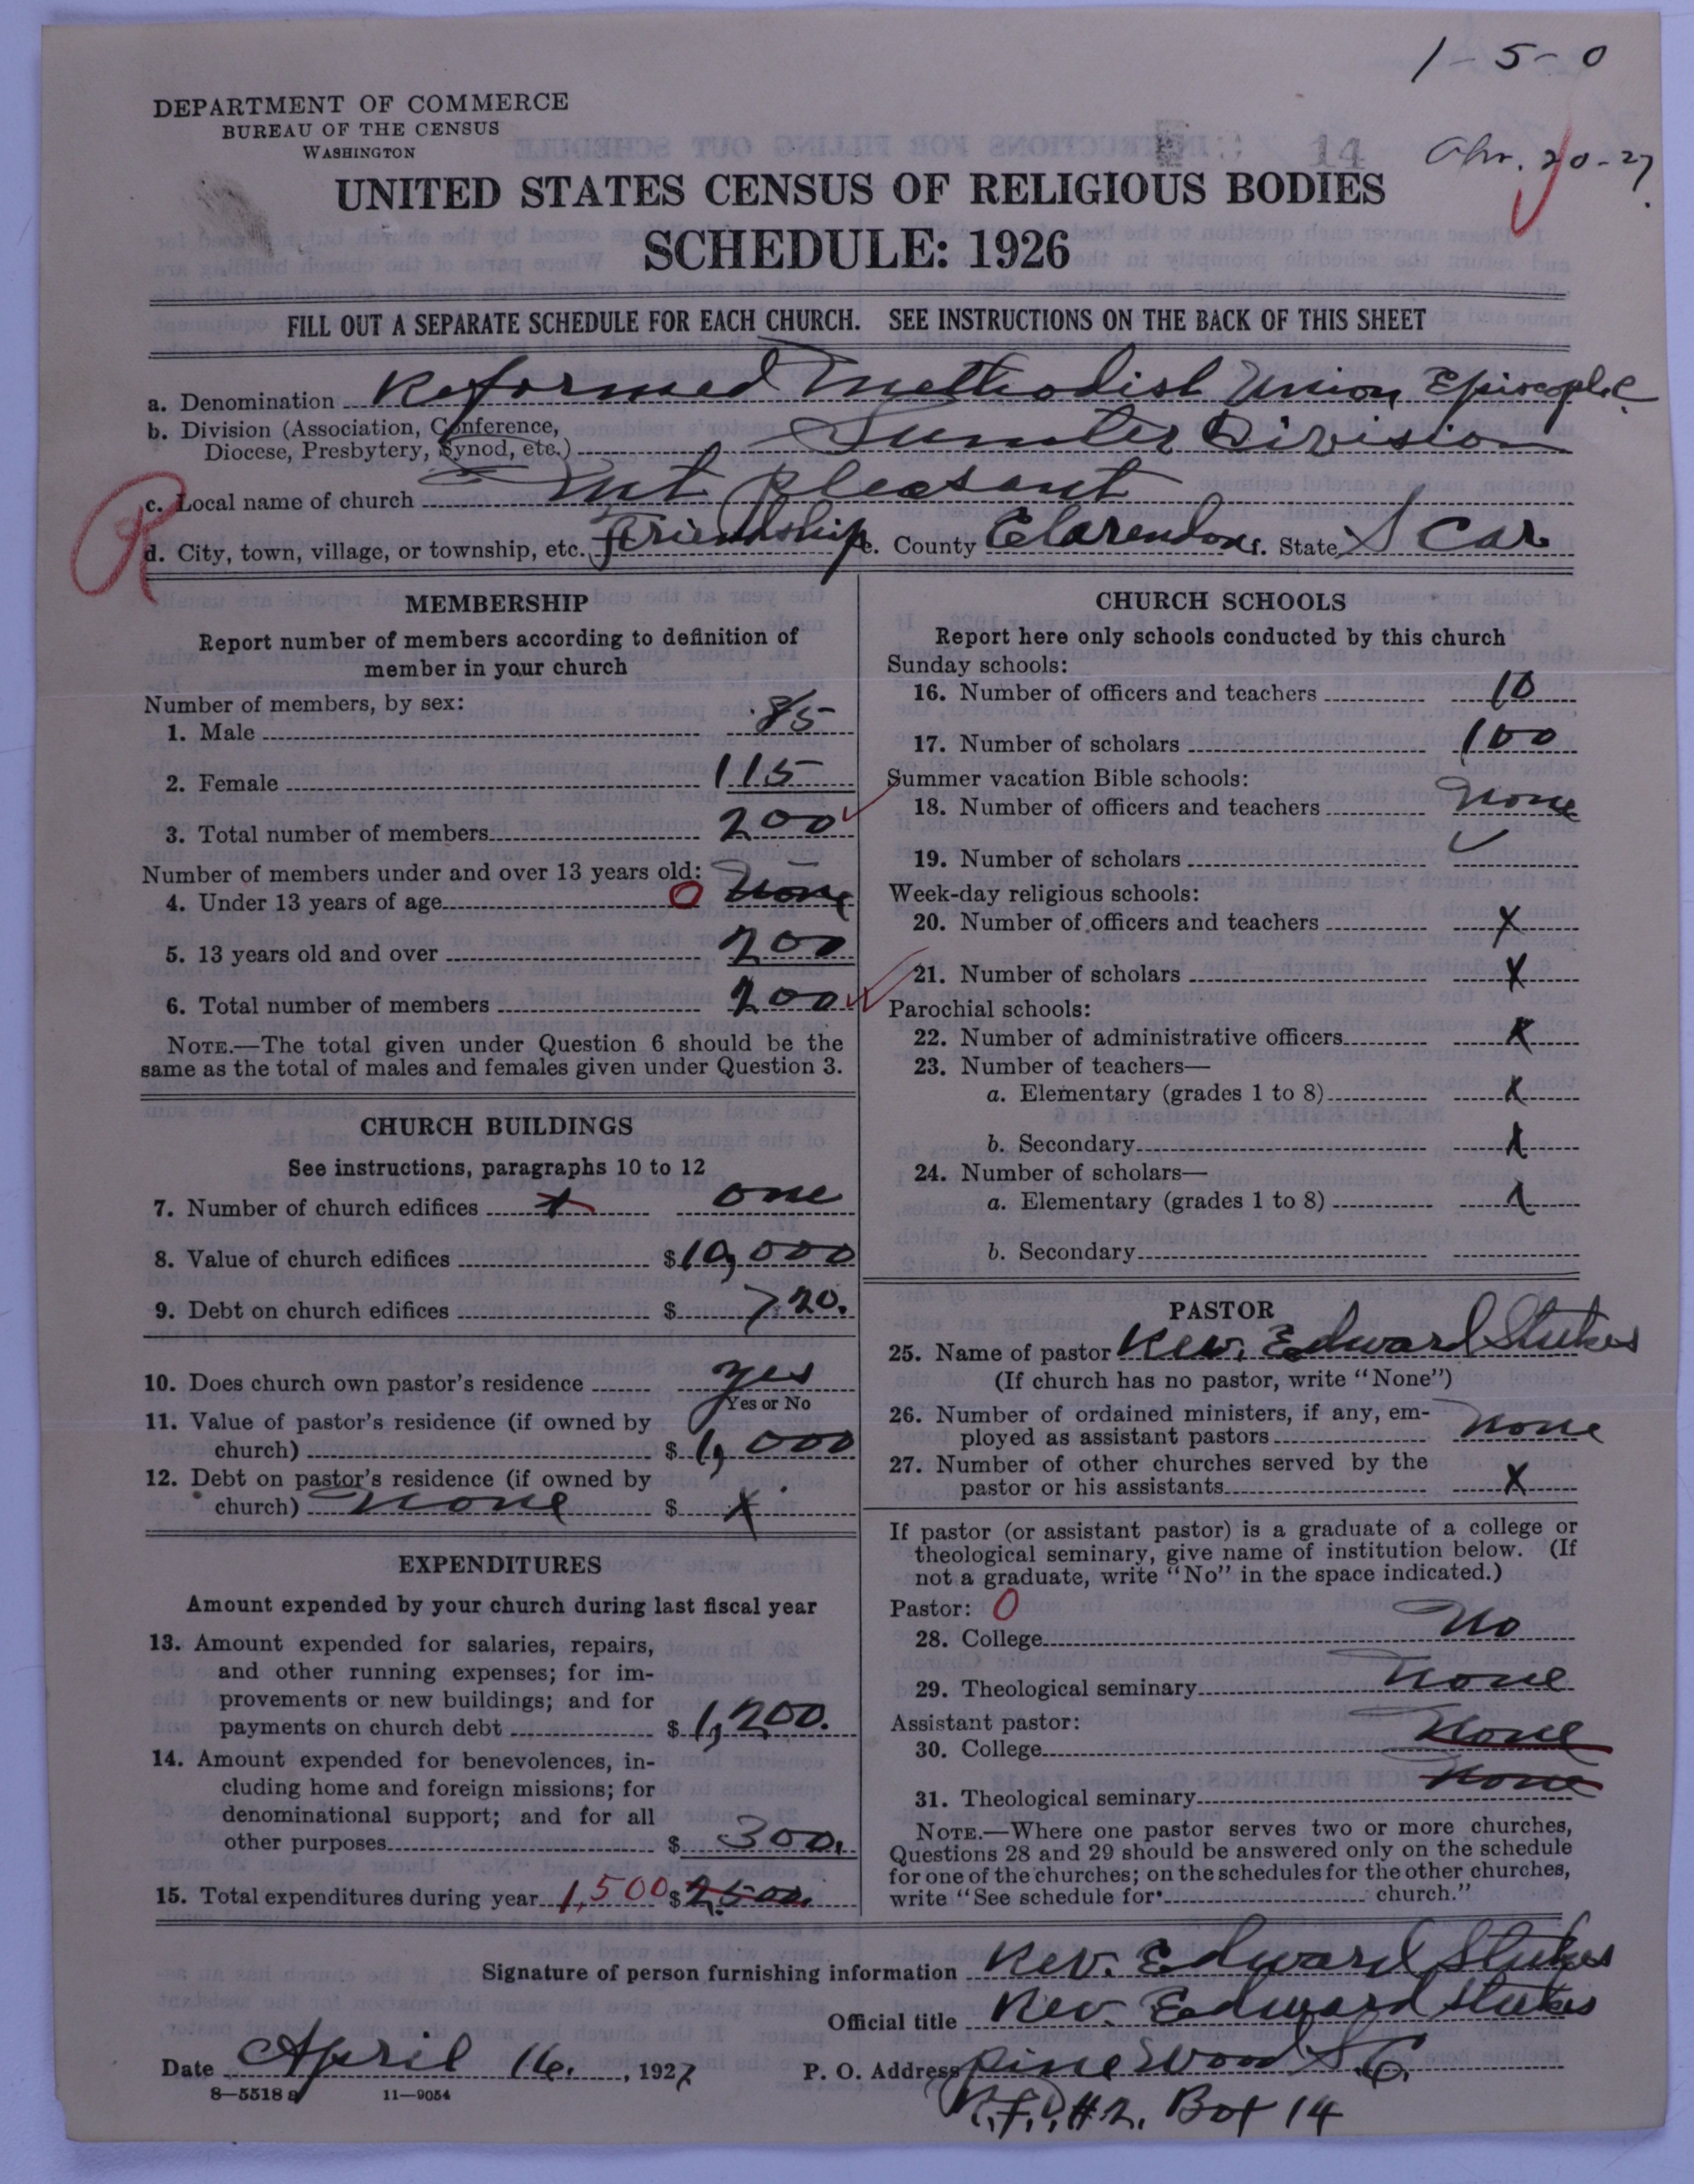 1-5-0
DEPARTMENT OF COMMERCE
BUREAU OF THE CENSUS
WASHINGTON
14
Apr. 20-27.
UNITED STATES CENSUS OF RELIGIOUS BODIES
SCHEDULE: 1926
FILL OUT A SEPARATE SCHEDULE FOR EACH CHURCH. SEE INSTRUCTIONS ON THE BACK OF THIS SHEET
a. Denomination Reformed Methodist Union Episcople
b. Division (Association, Conference,
Diocese, Presbytery, Synod, etc.) Sumter Division
c. Local name of church Mt Pleasant
R
d. City, town, village, or township, etc. Friendship e. County Clarendon f. State S Car
MEMBERSHIP
Report number of members according to definition of
member in your church
Number of members, by sex:
1. Male 85
2. Female 115
3. Total number of members 200
Number of members under and over 13 years old:
4. Under 13 years of age 0 None
5. 13 years old and over 200
6. Total number of members 200
NOTE.—The total given under Question 6 should be the
same as the total of males and females given under Question 3.
CHURCH BUILDINGS
See instructions, paragraphs 10 to 12
7. Number of church edifices 1 one
8. Value of church edifices $10,000
9. Debt on church edifices $ 720.
10. Does church own pastor's residence yes
Yes or No
11. Value of pastor's residence (if owned by
church) $ 1,000
12. Debt on pastor's residence (if owned by
church) None $ X
EXPENDITURES
Amount expended by your church during last fiscal year
13. Amount expended for salaries, repairs,
and other running expenses; for im-
provements or new buildings; and for
payments on church debt $ 1,200.
14. Amount expended for benevolences, in-
cluding home and foreign missions; for
denominational support; and for all
other purposes $ 300.
15. Total expenditures during year 1,500 $ 2,500.
CHURCH SCHOOLS
Report here only schools conducted by this church
Sunday schools:
16. Number of officers and teachers 10
17. Number of scholars 100
Summer vacation Bible schools:
18. Number of officers and teachers None
19. Number of scholars
Week-day religious schools:
20. Number of officers and teachers X
21. Number of scholars X
Parochial schools:
22. Number of administrative officers X
23. Number of teachers—
a. Elementary (grades 1 to 8) X
b. Secondary X
24. Number of scholars—
a. Elementary (grades 1 to 8) X
b. Secondary
PASTOR
25. Name of pastor Rev. Edward Stukes
(If church has no pastor, write "None")
26. Number of ordained ministers, if any, em-
ployed as assistant pastors None
27. Number of other churches served by the
pastor or his assistants X
If pastor (or assistant pastor) is a graduate of a college or
theological seminary, give name of institution below. (If
not a graduate, write "No" in the space indicated.)
Pastor: 0
28. College No
29. Theological seminary None
Assistant pastor:
30. College None
None
31. Theological seminary
NOTE.—Where one pastor serves two or more churches,
Questions 28 and 29 should be answered only on the schedule
for one of the churches; on the schedules for the other churches,
write "See schedule for church."
Signature of person furnishing information Rev. Edward Stukes
Official title Rev. Edward Stukes
Date April 16, 1927 P. O. Address Pinewood S.C.
8—5518 a 11—9054
R.F.D. #2, Box 14